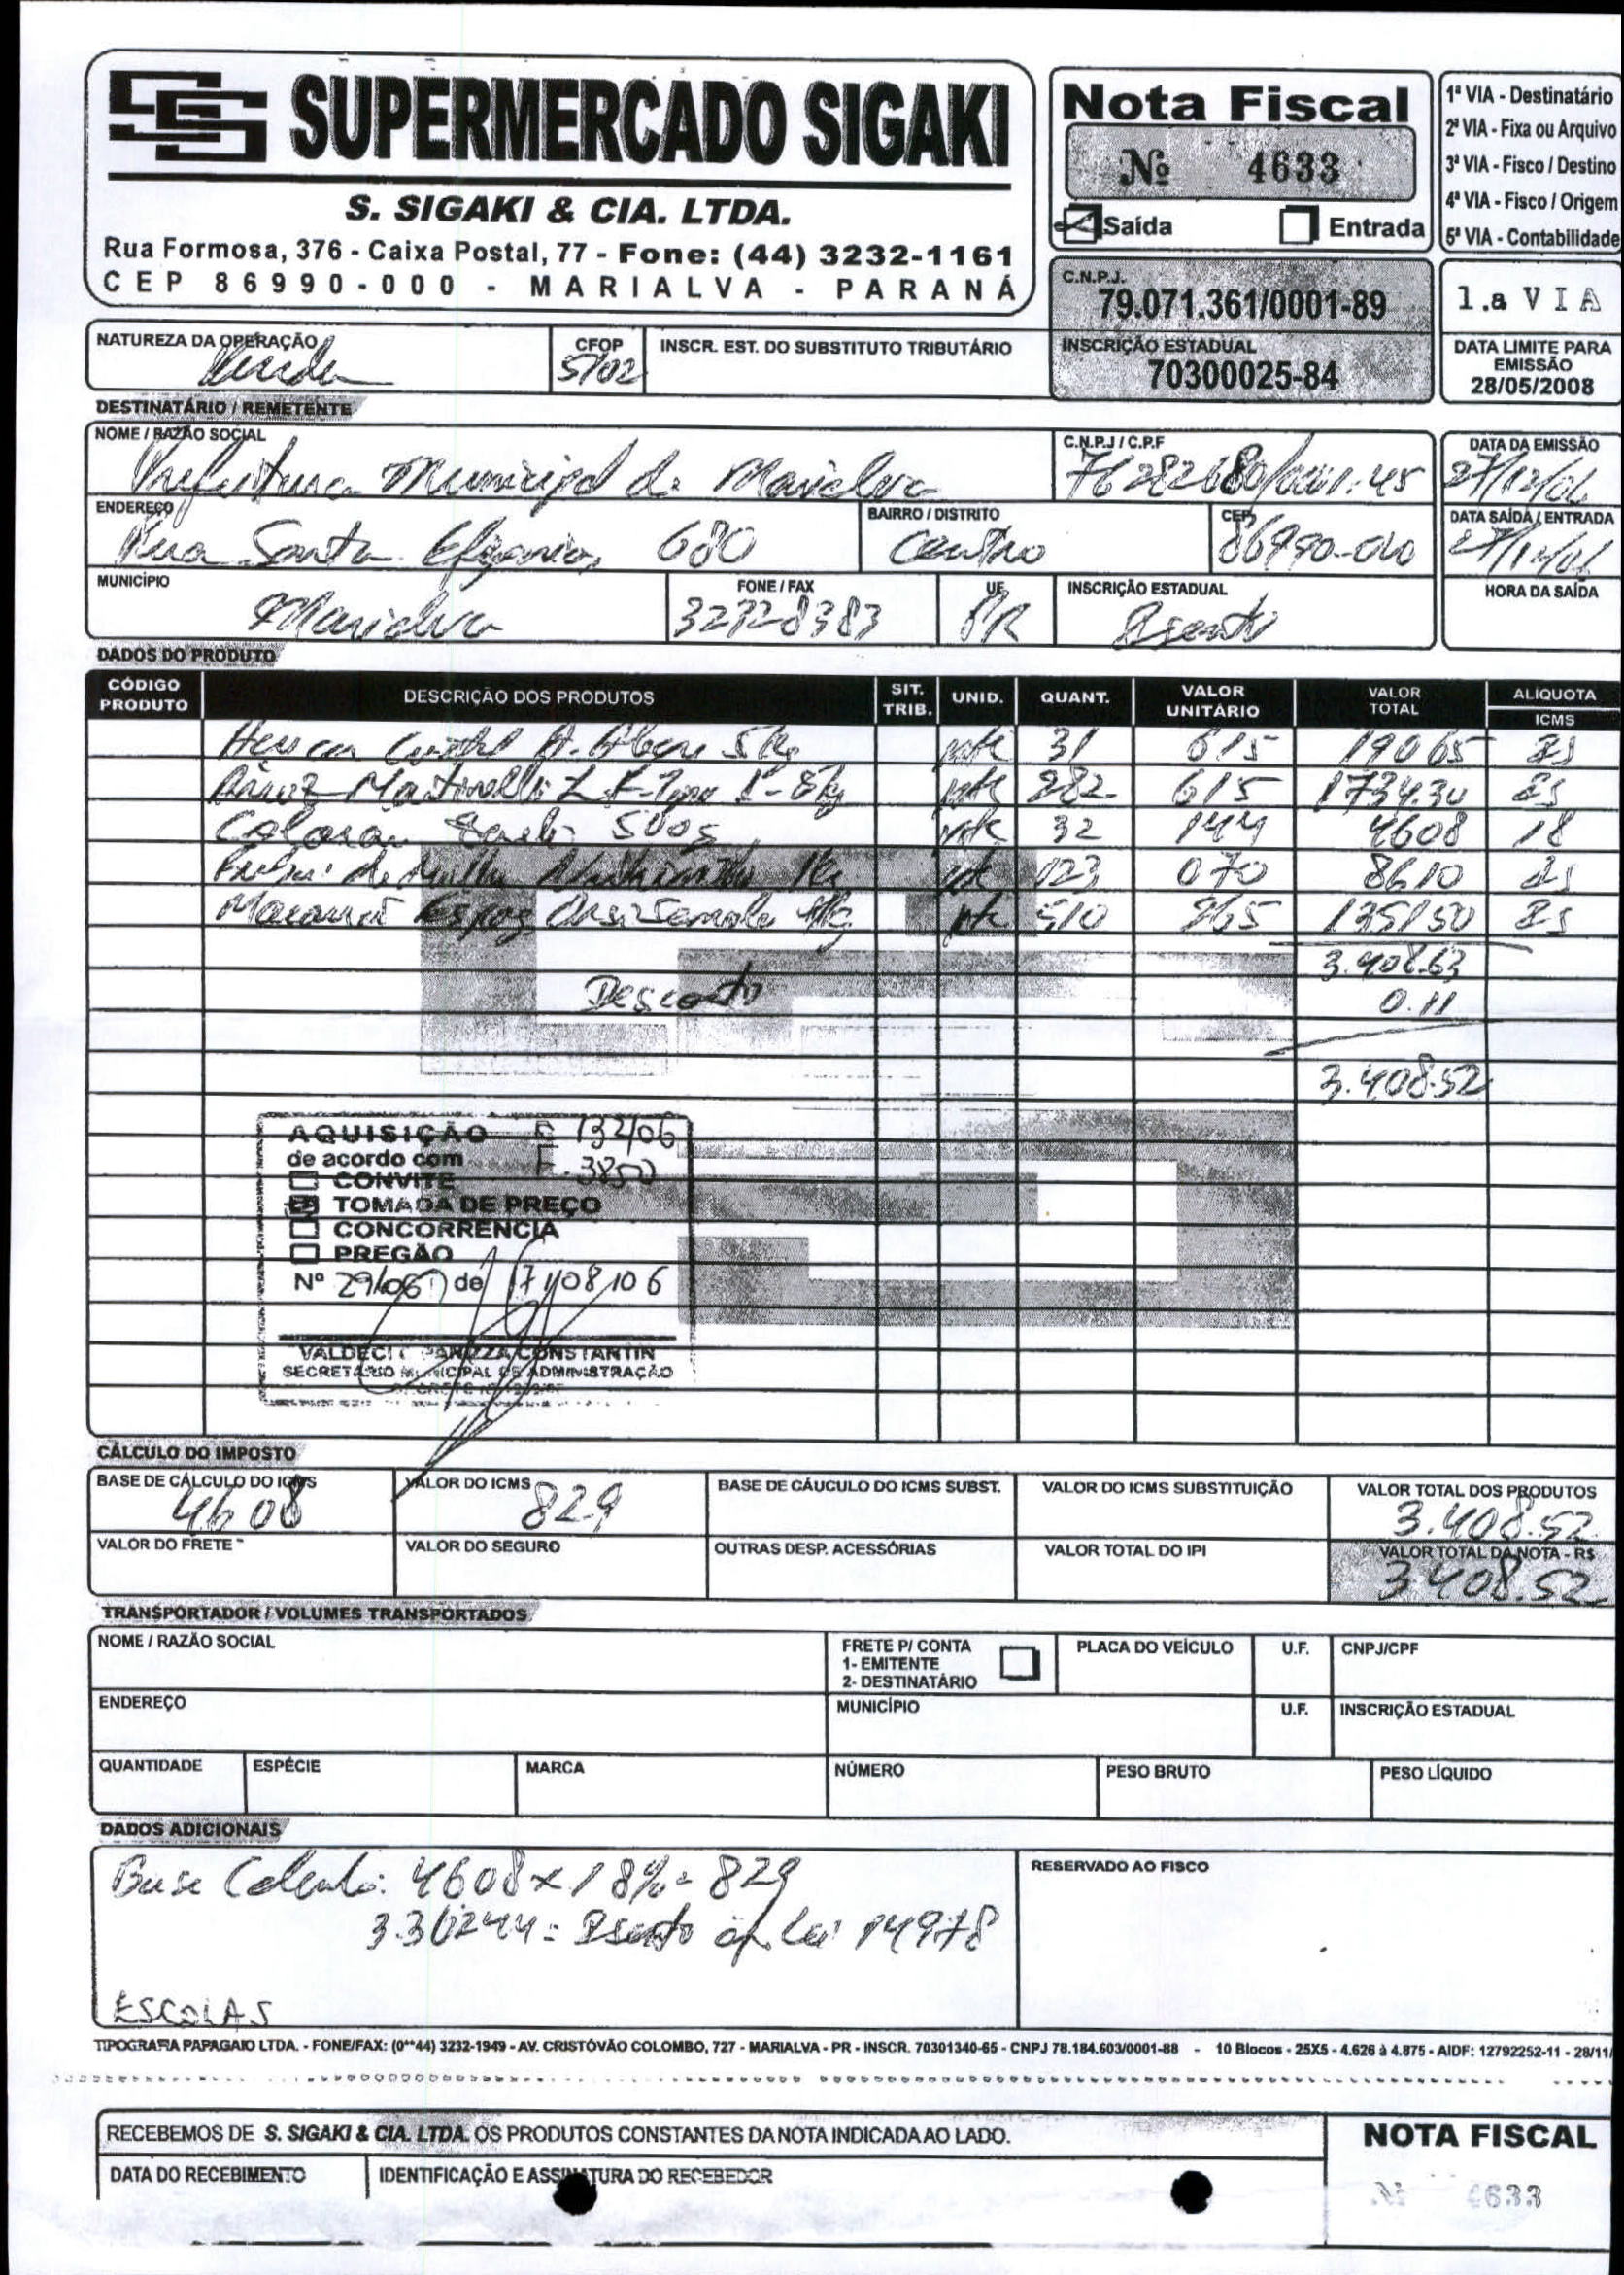 SUPERMERCADO SIGAKI
S. SIGAKI & CIA. LTDA.
Rua Formosa, 376 - Caixa Postal, 77 - Fone: (44) 3232-1161
CEP 86990-000 - MARIALVA - PARANÁ
Nota Fiscal
Nº 4633
Saída Entrada
1ª VIA - Destinatário
2ª VIA - Fixa ou Arquivo
3ª VIA - Fisco / Destino
4ª VIA - Fisco / Origem
5ª VIA - Contabilidade
C.N.P.J.
79.071.361/0001-89
INSCRIÇÃO ESTADUAL
70300025-84
1.a VIA
DATA LIMITE PARA
EMISSÃO
28/05/2008
NATUREZA DA OPERAÇÃO CFOP INSCR. EST. DO SUBSTITUTO TRIBUTÁRIO
Venda 5102
DESTINATÁRIO / REMETENTE
NOME / RAZÃO SOCIAL C.N.P.J / C.P.F DATA DA EMISSÃO
Prefeitura Municipal de Marialva 76282680/0001.45 27/12/06
ENDEREÇO BAIRRO / DISTRITO CEP DATA SAÍDA / ENTRADA
Rua Santa Efigenia, 680 Centro 86990-000 27/12/06
MUNICÍPIO FONE / FAX UF INSCRIÇÃO ESTADUAL HORA DA SAÍDA
Marialva 3232-8383 PR Isento
DADOS DO PRODUTO
CÓDIGO PRODUTO DESCRIÇÃO DOS PRODUTOS SIT. TRIB. UNID. QUANT. VALOR UNITÁRIO VALOR TOTAL ALIQUOTA ICMS
5kg 31 615 19065
Arroz 282 615 1734.30
500g 32 144 4608 18
1kg 123 070 8610
510 265 135150
3.408.63
Desconto 0.11
3.408.52
AQUISIÇÃO 132/06
de acordo com 3850
CONVITE
TOMADA DE PREÇO
CONCORRENCIA
PREGÃO
Nº 29/06 de 17/08/06
CONSTANTIN
SECRETARIO MUNICIPAL DE ADMINISTRAÇÃO
CÁLCULO DO IMPOSTO
BASE DE CÁLCULO DO ICMS VALOR DO ICMS BASE DE CÁUCULO DO ICMS SUBST. VALOR DO ICMS SUBSTITUIÇÃO VALOR TOTAL DOS PRODUTOS
4608 829 3.408.52
VALOR DO FRETE VALOR DO SEGURO OUTRAS DESP. ACESSÓRIAS VALOR TOTAL DO IPI VALOR TOTAL DA NOTA - R$
3408.52
TRANSPORTADOR / VOLUMES TRANSPORTADOS
NOME / RAZÃO SOCIAL FRETE P/ CONTA PLACA DO VEÍCULO U.F. CNPJ/CPF
1- EMITENTE
2- DESTINATÁRIO
ENDEREÇO MUNICÍPIO U.F. INSCRIÇÃO ESTADUAL
QUANTIDADE ESPÉCIE MARCA NÚMERO PESO BRUTO PESO LÍQUIDO
DADOS ADICIONAIS
RESERVADO AO FISCO
Base Calculo: 4608 x 18% = 829
Isento lei 14978
ESCOLAS
TIPOGRAFIA PAPAGAIO LTDA. - FONE/FAX: (0**44) 3232-1949 - AV. CRISTÓVÃO COLOMBO, 727 - MARIALVA - PR - INSCR. 70301340-65 - CNPJ 78.184.603/0001-88 - 10 Blocos - 25X5 - 4.626 à 4.875 - AIDF: 12792252-11 - 28/11/
RECEBEMOS DE S. SIGAKI & CIA. LTDA. OS PRODUTOS CONSTANTES DA NOTA INDICADA AO LADO.
DATA DO RECEBIMENTO IDENTIFICAÇÃO E ASSINATURA DO RECEBEDOR
NOTA FISCAL
Nº 4633